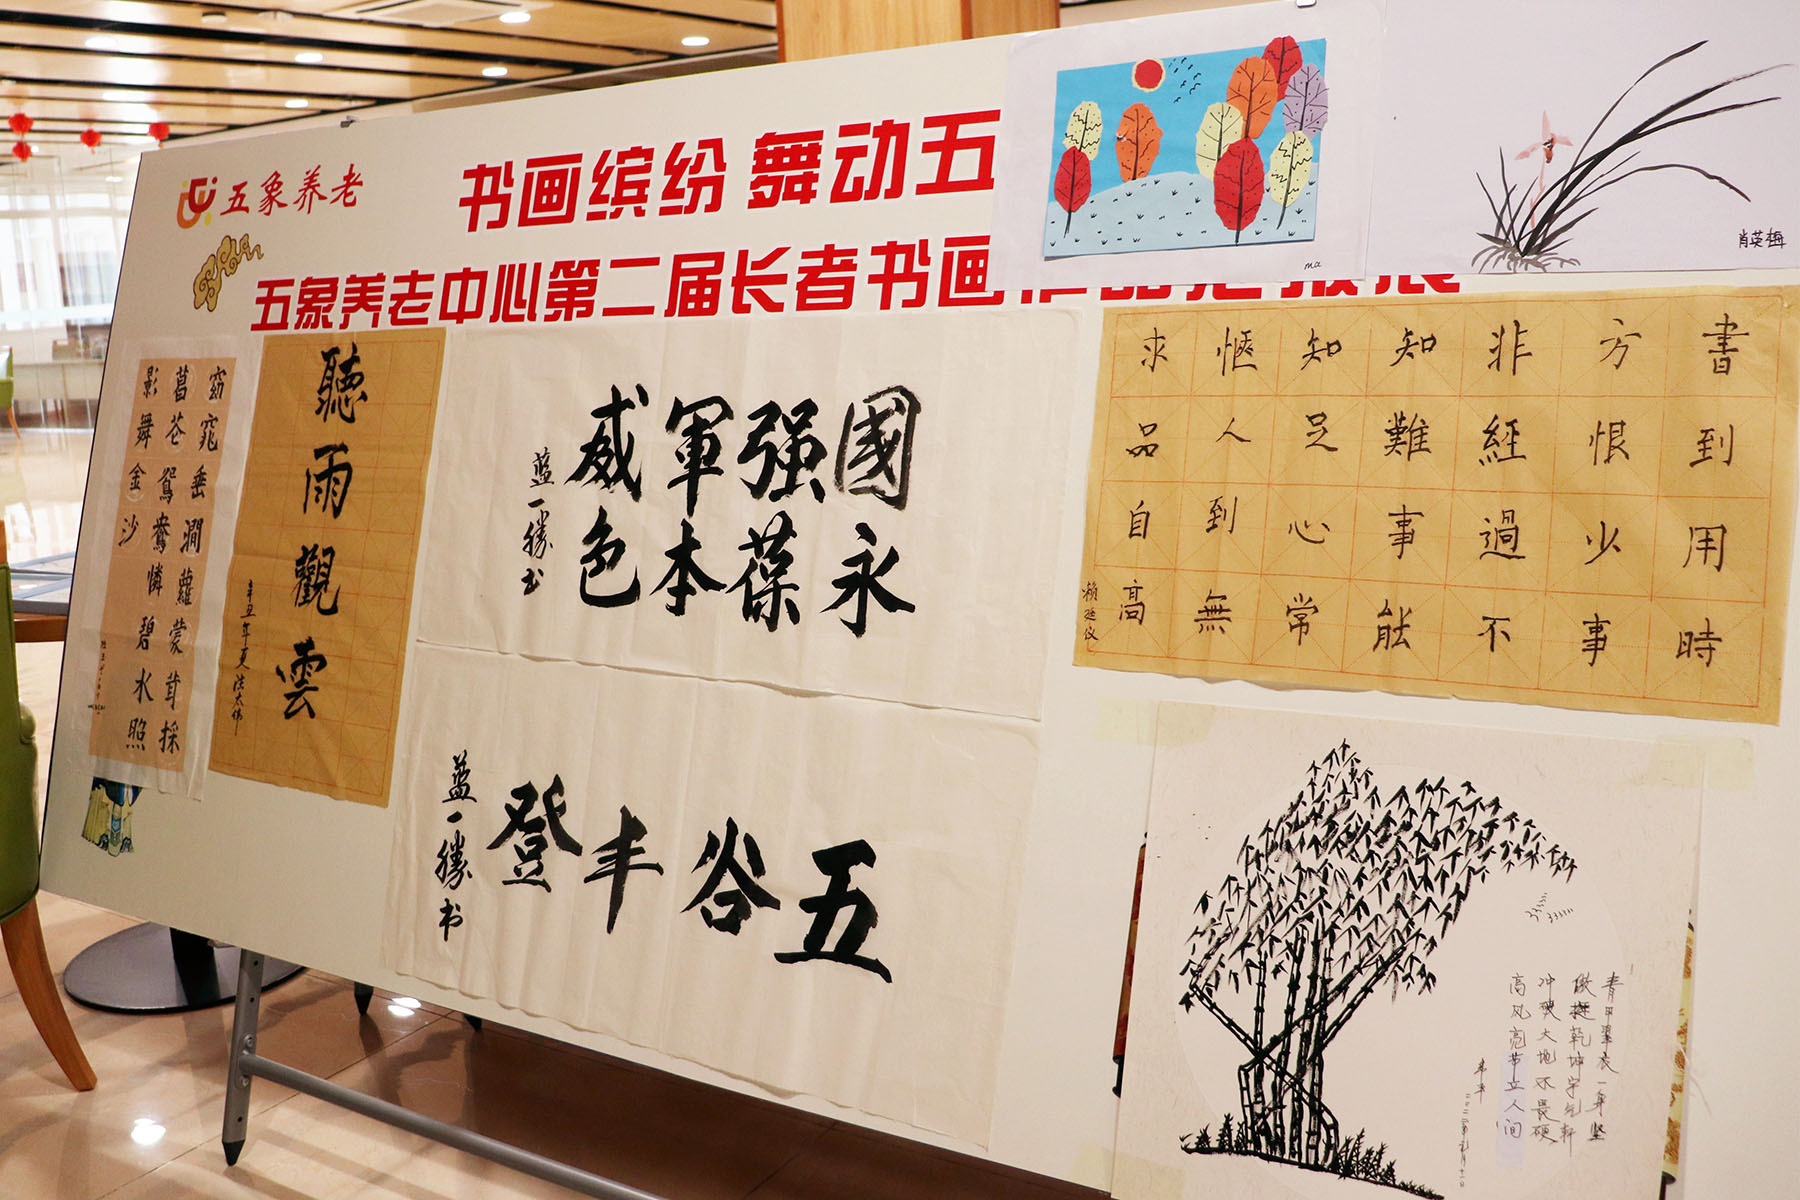 五象养老
书画缤纷 舞动五
五象养老中心第二届长者书画作品汇报展
肖英梅
ma
窈窕垂澗蘿蒙茸採
菖苍鴛鴦憐碧水照
影舞金沙
聽雨觀雲
辛丑年夏
國永
强葆
軍本
威色
蓝一勝书
五谷丰登
蓝一勝书
書到用時
方恨少事
非經過不
知難事能
知足心常
愜人到無
求品自高
赖廷仪
青甲翠衣一身坚
傲挺乾坤宇
冲犯大地不畏硬
高风亮节立人间